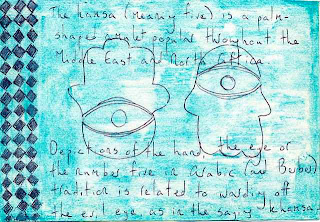 The hamsa (meaning five) is a palm-
shaped amulet popular throughout the
Middle East and North Africa.
Depictions of the hand, the eye or
the number five in Arabic (and Berber)
tradition is related to warding off
the evil eye, as in the saying khamsa